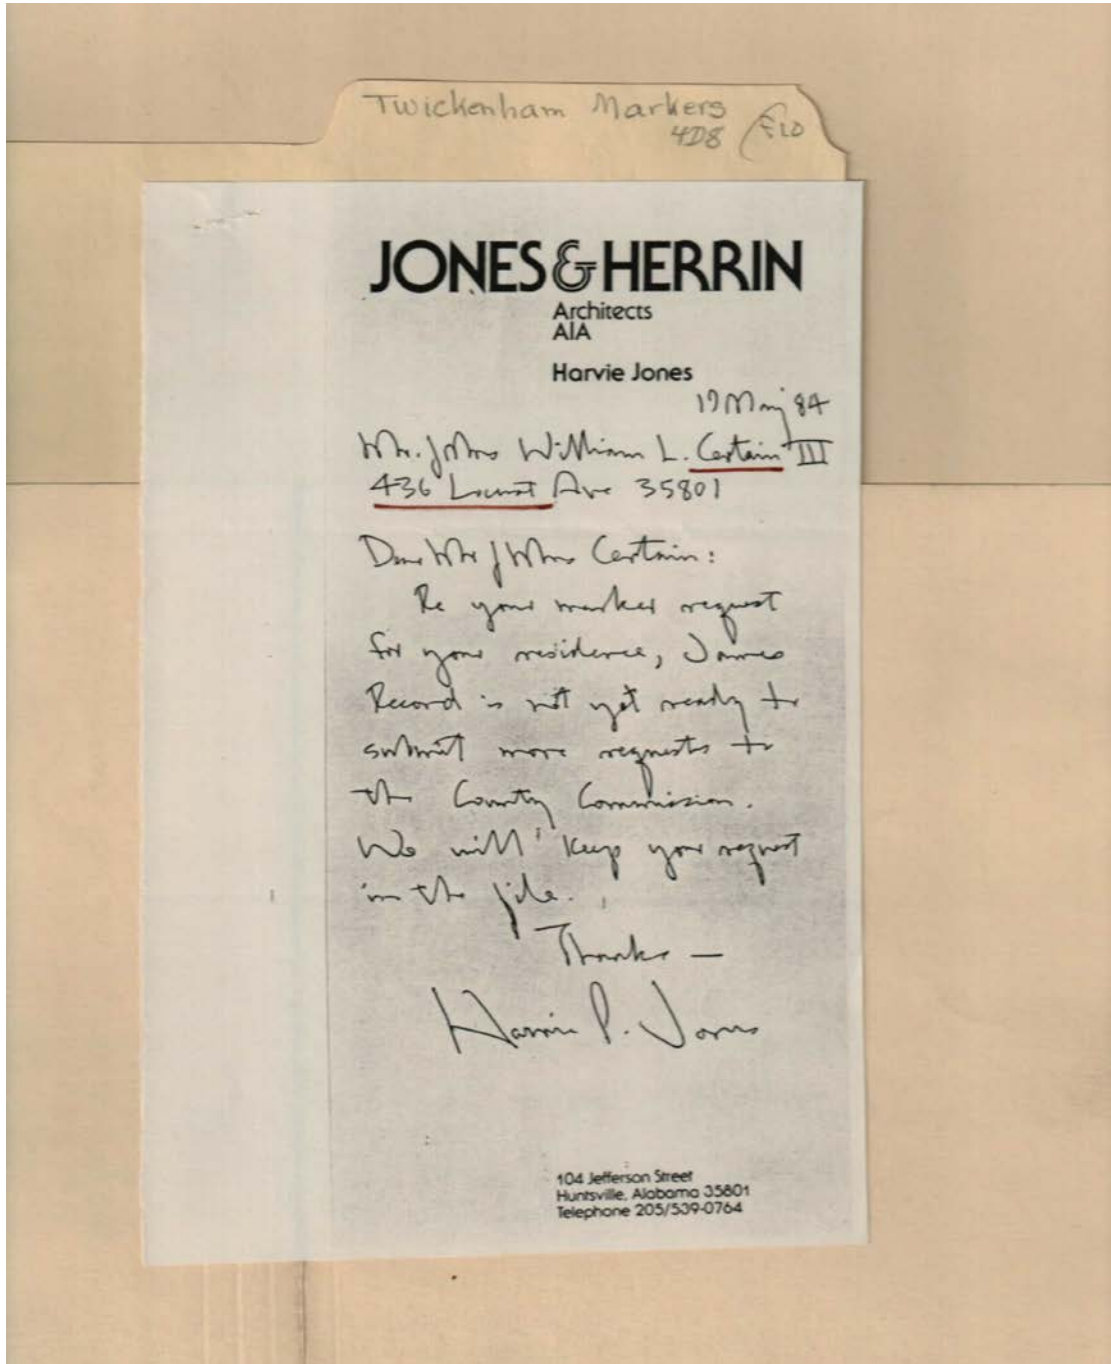 Twickenham Markers
4D8
JONES & HERRIN
Architects
AIA
Harvie Jones
May 84
Mr. & Mrs William L. Certain III
436 Locust Ave 35801
Dear Mr & Mrs Certain:
Re your marker request
for your residence, James
Record is not yet ready to
submit more requests to
the County Commission.
We will keep your request
in the file.
Thanks —
Harvie P. Jones
104 Jefferson Street
Huntsville, Alabama 35801
Telephone 205/539-0764